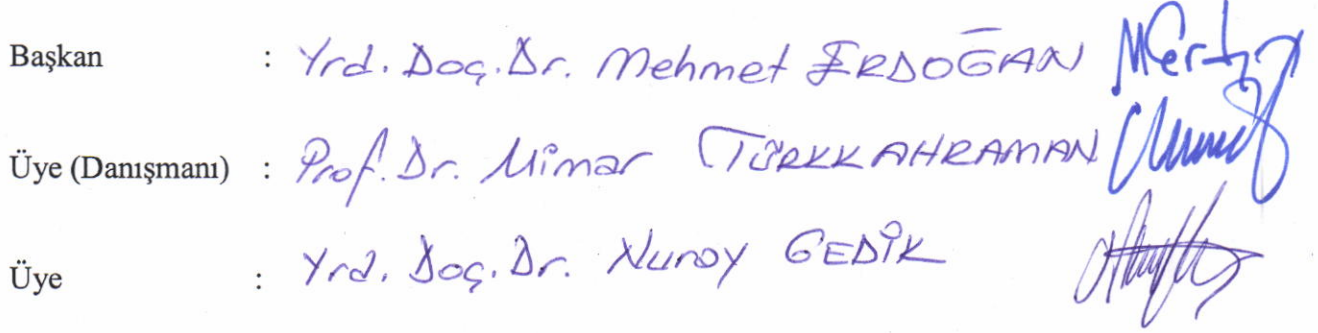 Başkan : Yrd. Doç. Dr. Mehmet ERDOĞAN
Üye (Danışmanı) : Prof. Dr. Mimar TÜRKKAHRAMAN
Üye : Yrd. Doç. Dr. Nuray GEDİK